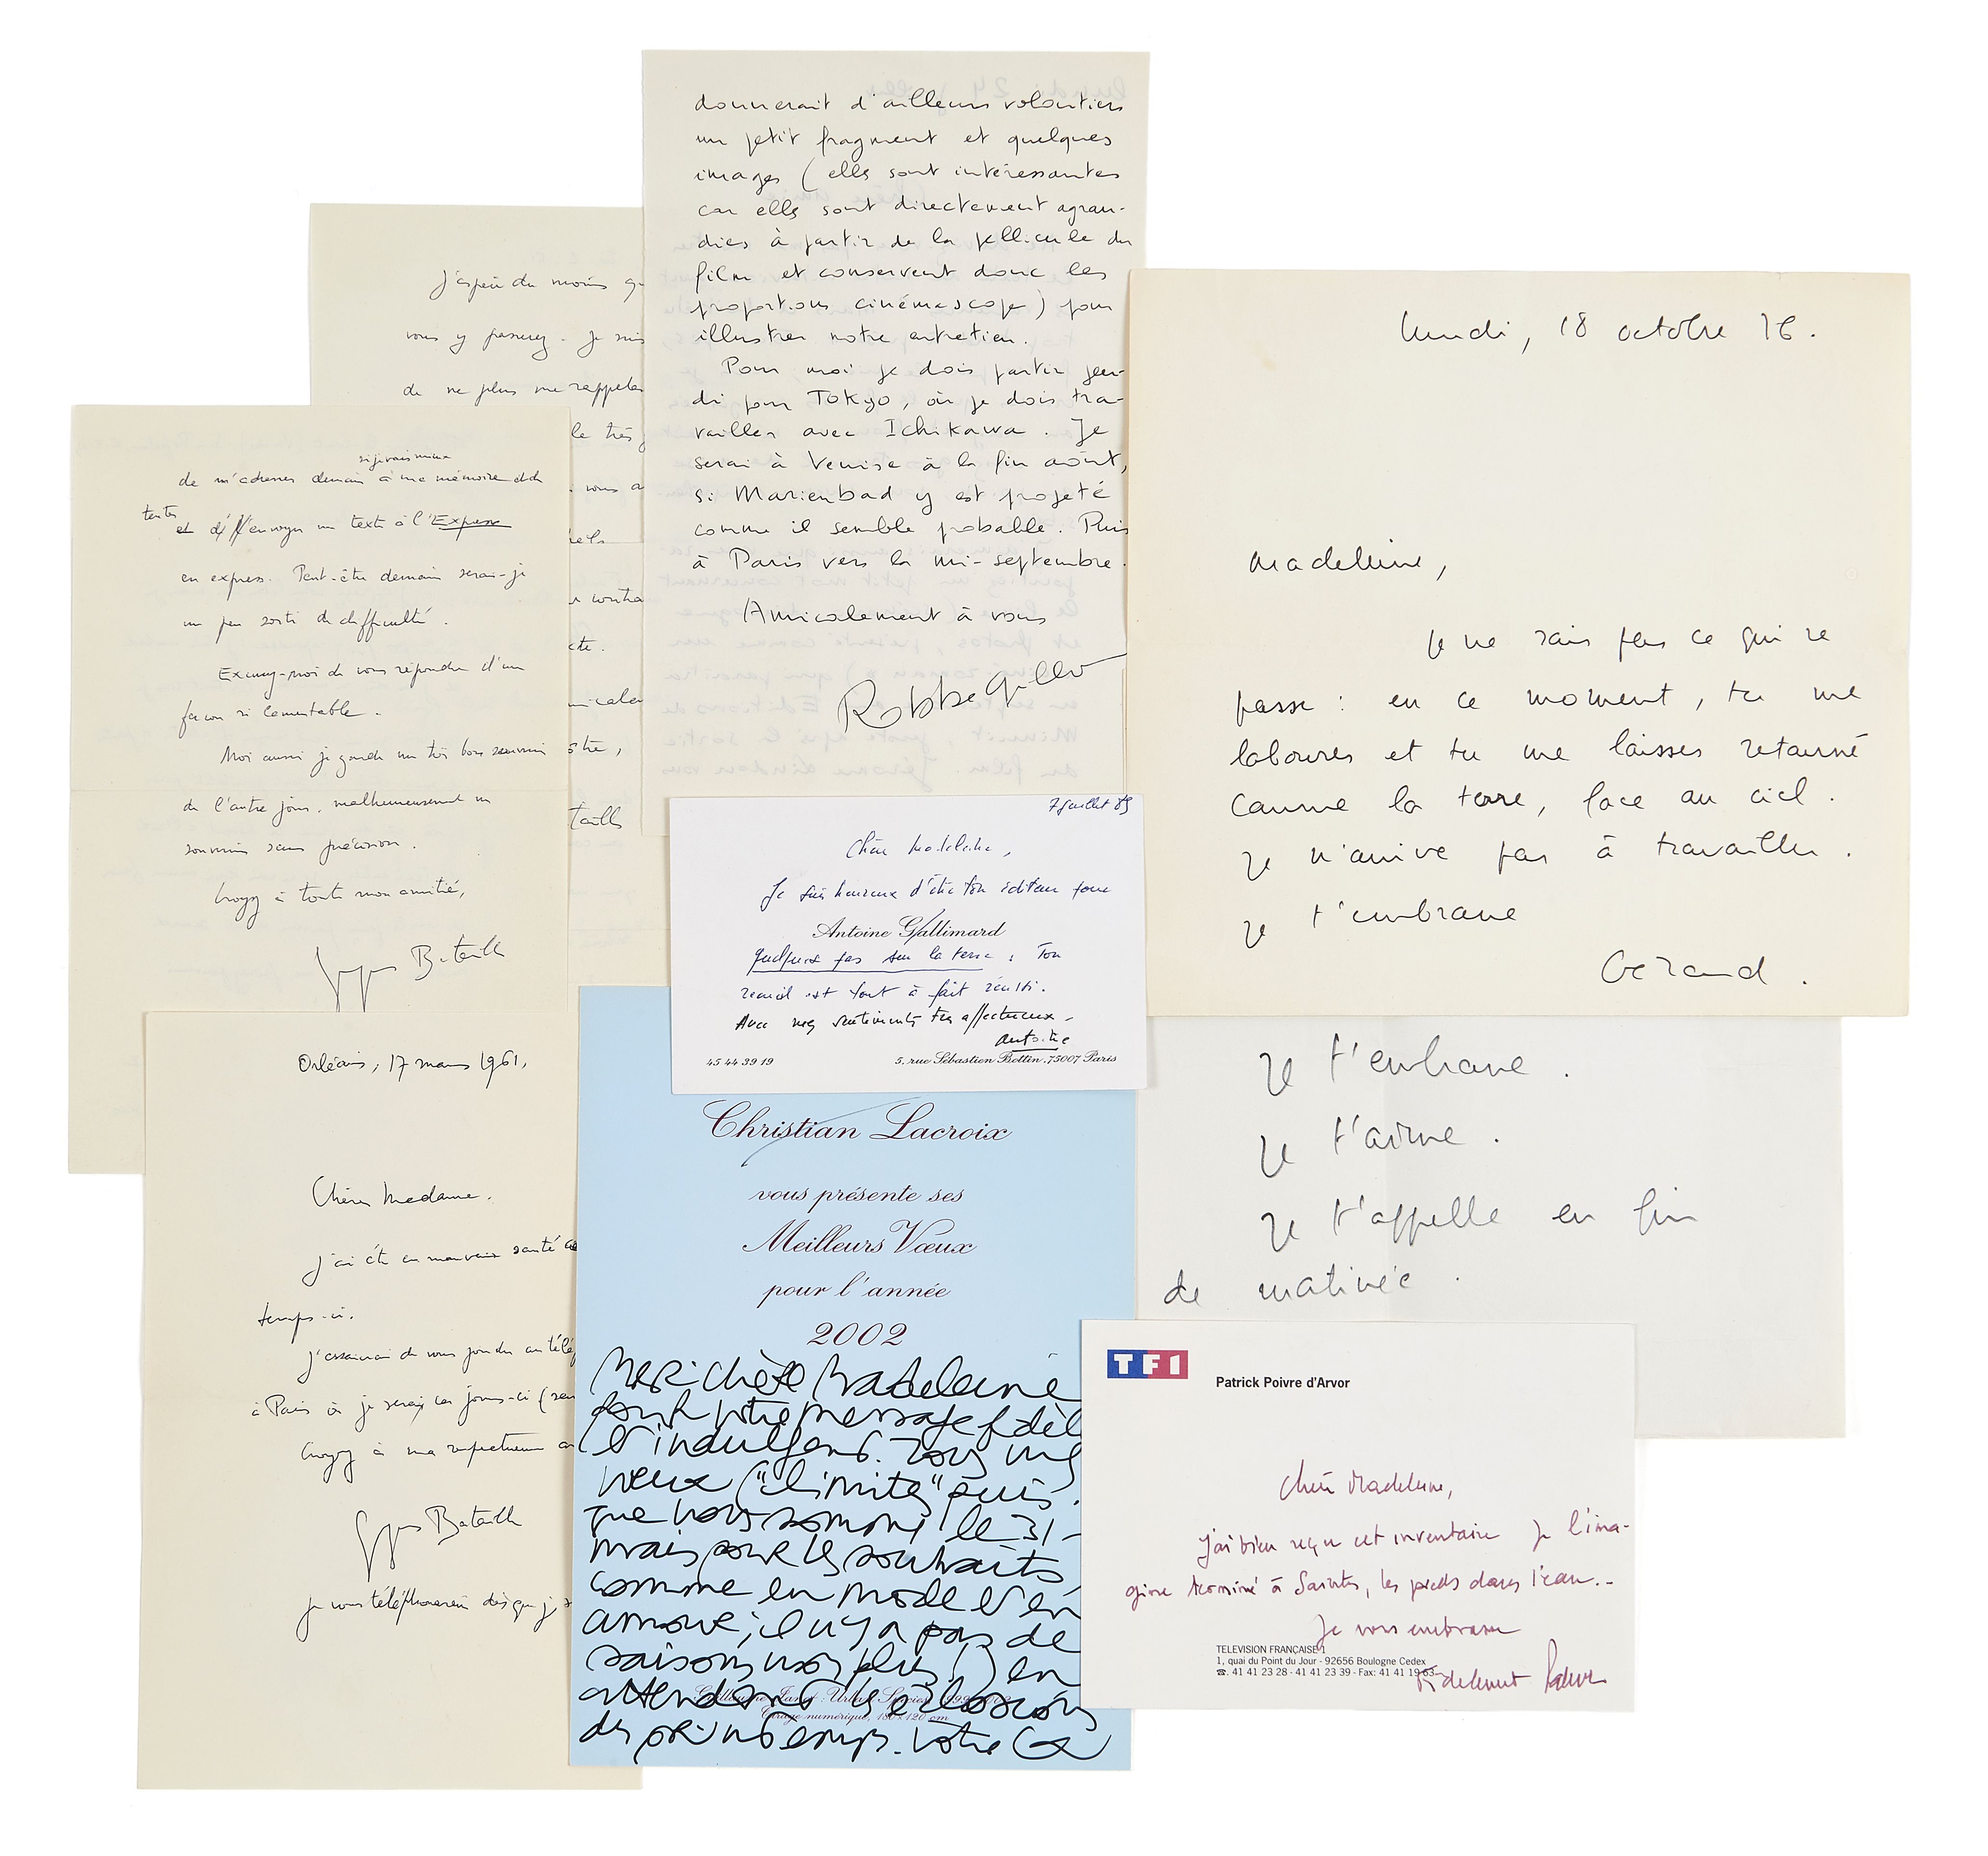 donnerait d'ailleurs volontiers
un petit fragment et quelques
images (elles sont intéressantes
car elles sont directement agran-
dies à partir de la pellicule du
film et conservent donc les
proportions cinémascope) pour
illustrer notre entretien.
Pour moi je dois partir jeu-
di pour Tokyo, où je dois tra-
vailler avec Ichikawa. Je
serai à Venise à la fin août,
si Marienbad y est projeté
comme il semble probable. Puis
à Paris vers la mi-septembre.
Amicalement à vous
Robbe-Grillet
J'espère du moins
vous y passerez. Je suis
de ne plus me rappeler
le très
vous a
cte.
de m'adresser demain à ma mémoire
tenter
et d'envoyer un texte à l'Express
en express. Peut-être demain serai-je
un peu sorti de difficulté.
Excusez-moi de vous répondre d'une
façon si lamentable.
Moi aussi je garde un très bon souvenir
de l'autre jour, malheureusement un
souvenir sans précision.
Croyez à toute mon amitié,
Georges Bataille
Orléans, 17 mars 1961.
Chère Madame.
J'ai été en mauvaise santé ces
temps-ci.
J'essaierai de vous joindre au télé
à Paris où je serai ces jours-ci
Croyez à ma respectueuse
Georges Bataille
Je vous téléphonerai dès que je
lundi, 18 octobre 76.
Madeleine,
Je ne sais pas ce qui se
passe : en ce moment, tu me
laboures et tu me laisses retourné
comme la terre, face au ciel.
Je n'arrive pas à travailler.
Je t'embrasse
Gérard.
Je t'embrasse.
Je t'aime.
Je t'appelle en fin
de matinée.
7 juillet 89
Chère Madeleine,
Je suis heureux d'être ton éditeur pour
Antoine Gallimard
Quelques pas sur la terre : Ton
recueil est tout à fait réussi.
Avec mes sentiments très affectueux,
Antoine
45 44 39 19
5, rue Sébastien Bottin, 75007 Paris
Christian Lacroix
vous présente ses
Meilleurs Vœux
pour l'année
2002
Merci chère Madeleine
pour votre message fidèle
et indulgent. Tous mes
vœux ("limites" puis-
que nous sommes le 31-
mais pour les souhaits,
comme en mode et en
amour, il n'y a pas de
saisons non plus!) en
attendant les éclosions
du printemps. Votre
TF1
Patrick Poivre d'Arvor
Chère Madeleine,
J'ai bien reçu cet inventaire Je l'ima-
gine terminé à Saintes, les pieds dans l'eau...
Je vous embrasse
TELEVISION FRANCAISE 1
1, quai du Point du Jour - 92656 Boulogne Cedex
☎. 41 41 23 28 - 41 41 23 39 - Fax: 41 41 19 63
Fidèlement